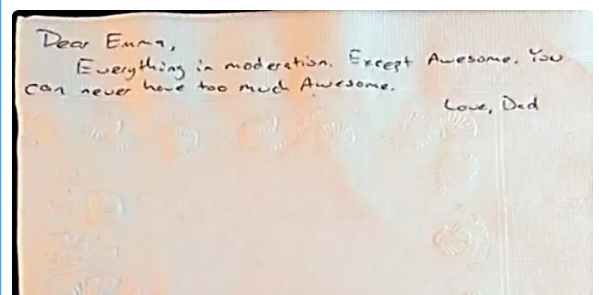 Dear Emma,
Everything in moderation. Except Awesome. You
can never have too much Awesome.
Love, Dad